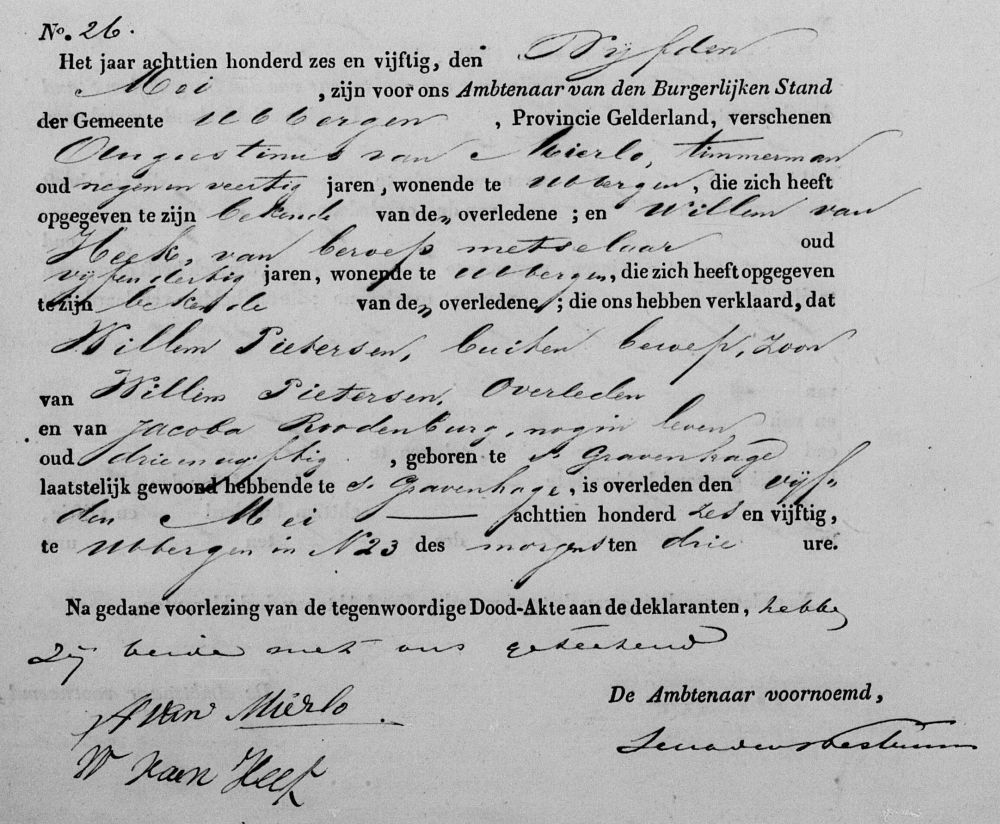 No. 26.
Het jaar achttien honderd zes en vijftig, den Vijfden
Mei, zijn voor ons Ambtenaar van den Burgerlijken Stand
der Gemeente Ubbergen, Provincie Gelderland, verschenen
Augustinus van Mierlo, timmerman
oud negenen veertig jaren, wonende te Ubbergen, die zich heeft
opgegeven te zijn bekende van den overledene; en Willem van
Heek, van beroep metselaar oud
vijfendertig jaren, wonende te Ubbergen, die zich heeft opgegeven
te zijn bekende van den overledene; die ons hebben verklaard, dat
Willem Pietersen, buiten beroep, zoon
van Willem Pietersen, Overleden
en van Jacoba Roodenburg, nog in leven
oud drieenvijftig, geboren te 's Gravenhage
laatstelijk gewoond hebbende te 's Gravenhage, is overleden den vijf"
den Mei — achttien honderd zes en vijftig,
te Ubbergen in N 23 des morgens ten drie ure.
Na gedane voorlezing van de tegenwoordige Dood-Akte aan de deklaranten, hebben
Zij beide met ons geteekend
De Ambtenaar voornoemd,
A van Mierlo.
W van Heek